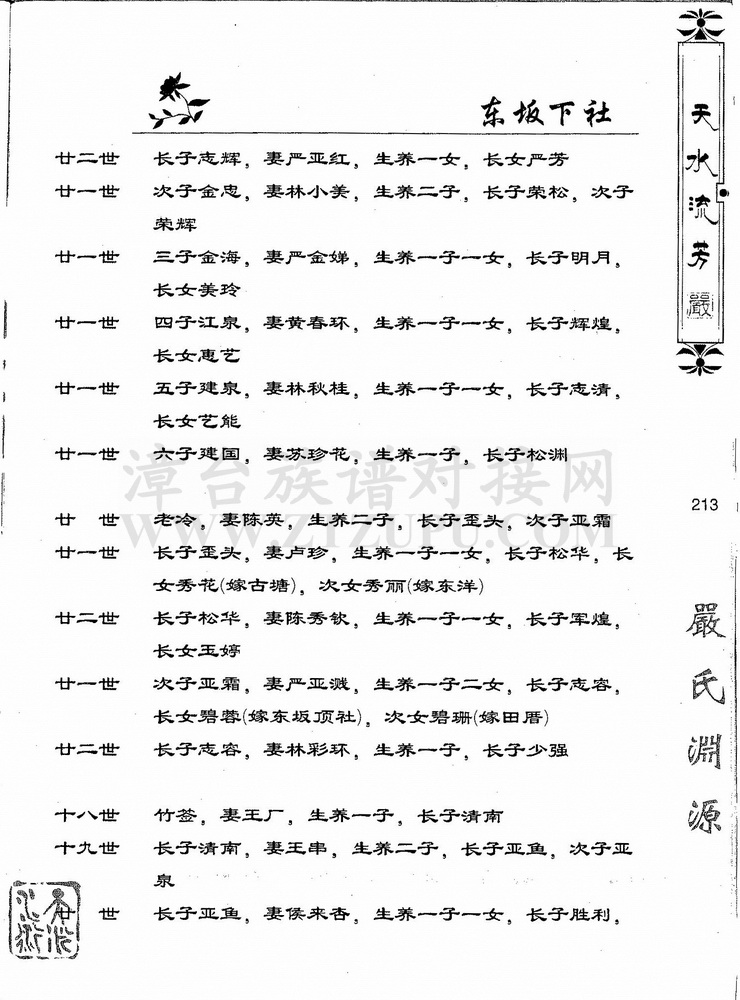 东坂下社
廿二世 长子志辉，妻严亚红，生养一女，长女严芳
廿一世 次子金忠，妻林小美，生养二子，长子荣松，次子
荣辉
廿一世 三子金海，妻严金娣，生养一子一女，长子明月，
长女美玲
廿一世 四子江泉，妻黄春环，生养一子一女，长子辉煌，
长女惠艺
廿一世 五子建泉，妻林秋桂，生养一子一女，长子志清，
长女艺能
廿一世 六子建国，妻苏珍花，生养一子，长子松渊
廿 世 老冷，妻陈英，生养二子，长子歪头，次子亚霜
廿一世 长子歪头，妻卢珍，生养一子一女，长子松华，长
女秀花(嫁古塘)，次女秀丽(嫁东洋)
廿二世 长子松华，妻陈秀钦，生养一子一女，长子军煌，
长女玉婷
廿一世 次子亚霜，妻严亚溅，生养一子二女，长子志容，
长女碧蓉(嫁东坂顶社)，次女碧珊(嫁田厝)
廿二世 长子志容，妻林彩环，生养一子，长子少强
十八世 竹荟，妻王厂，生养一子，长子清南
十九世 长子清南，妻王串，生养二子，长子亚鱼，次子亚
泉
廿 世 长子亚鱼，妻侯来杏，生养一子一女，长子胜利，
天水流芳
嚴
213
嚴氏淵源
漳台族谱对接网
WWW.ZTZUPU.COM